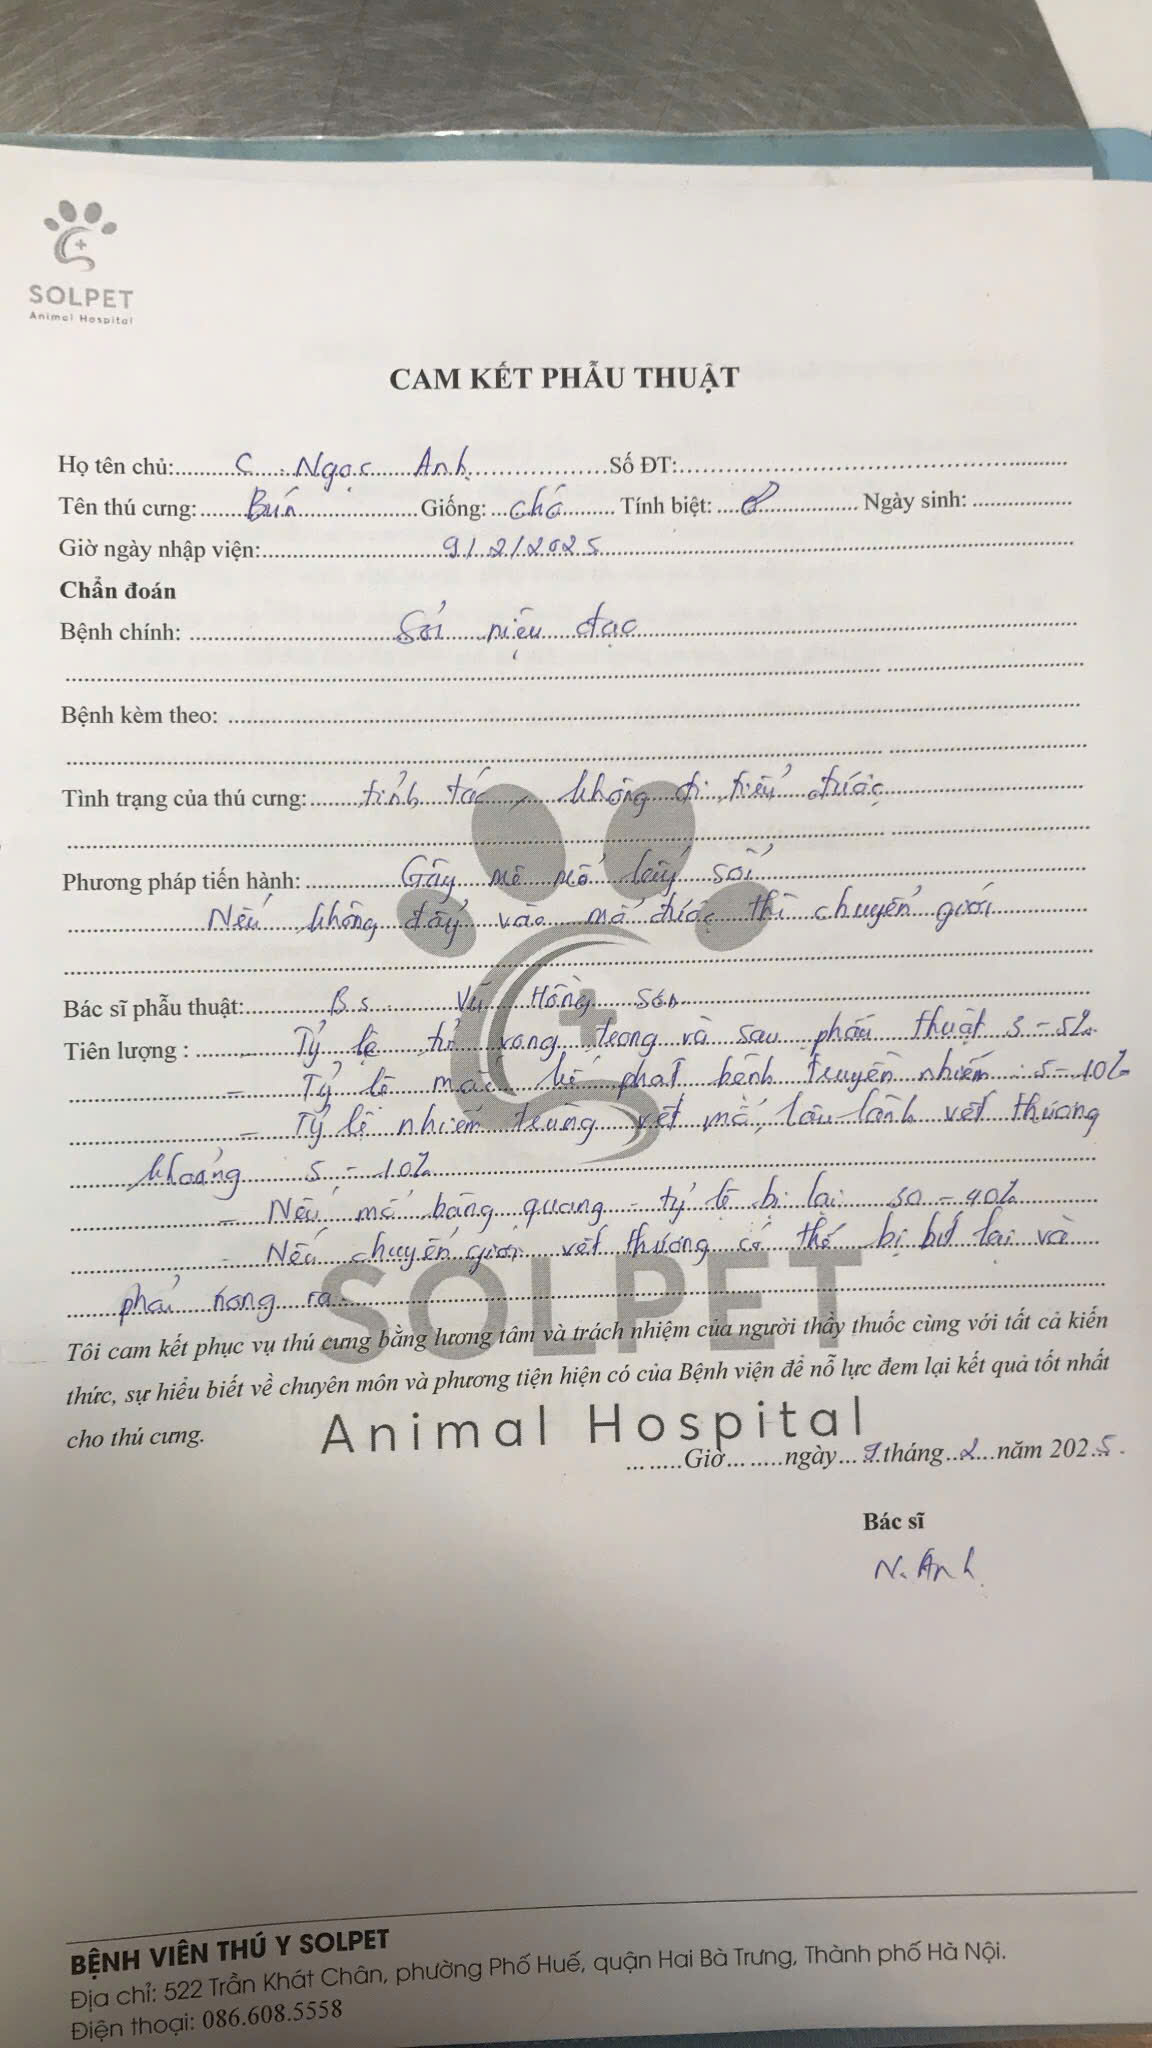 SOLPET
Animal Hospital
CAM KẾT PHẪU THUẬT
Họ tên chủ: C. Ngọc Anh Số ĐT:
Tên thú cưng: Bún Giống: chó Tính biệt: ♂ Ngày sinh:
Giờ ngày nhập viện: 9/2/2025
Chẩn đoán
Bệnh chính: Sỏi niệu đạo
Bệnh kèm theo:
Tình trạng của thú cưng: tỉnh táo, không đi tiểu được
Phương pháp tiến hành: Gây mê mổ lấy sỏi
Nếu không đẩy vào mổ được thì chuyển giới
Bác sĩ phẫu thuật: B.s. Vũ Hồng Sơn
Tiên lượng : - Tỷ lệ tử vong trong và sau phẫu thuật 3-5%
- Tỷ lệ mắc kế phát bệnh truyền nhiễm : 5-10%
- Tỷ lệ nhiễm trùng vết mổ, lâu lành vết thương
khoảng 5-10%
- Nếu mổ bàng quang - tỷ lệ bị lại 30-40%
- Nếu chuyển giới vết thương có thể bị bít lại và
phải nong ra
Tôi cam kết phục vụ thú cưng bằng lương tâm và trách nhiệm của người thầy thuốc cùng với tất cả kiến
thức, sự hiểu biết về chuyên môn và phương tiện hiện có của Bệnh viện để nỗ lực đem lại kết quả tốt nhất
cho thú cưng.
SOLPET
Animal Hospital
Giờ ngày 9 tháng 2 năm 2025.
Bác sĩ
N. Anh
BỆNH VIÊN THÚ Y SOLPET
Địa chỉ: 522 Trần Khát Chân, phường Phố Huế, quận Hai Bà Trưng, Thành phố Hà Nội.
Điện thoại: 086.608.5558